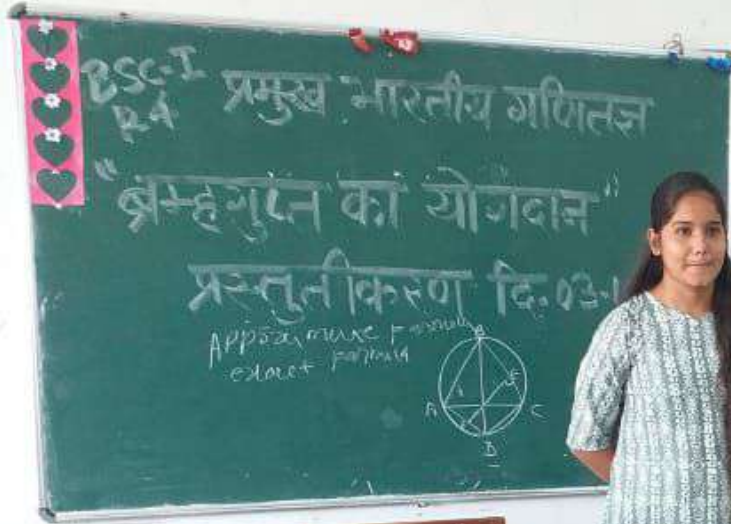 BSC-I
R4
प्रमुख भारतीय गणितज्ञ
"ब्रम्हगुप्त का योगदान"
प्रस्तुतीकरण दि.03-
Approximate Formula
exact formula
B
A
C
D